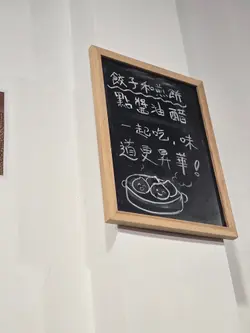 餃子和煎餅
點醬油醋
一起吃，味
道更昇華！